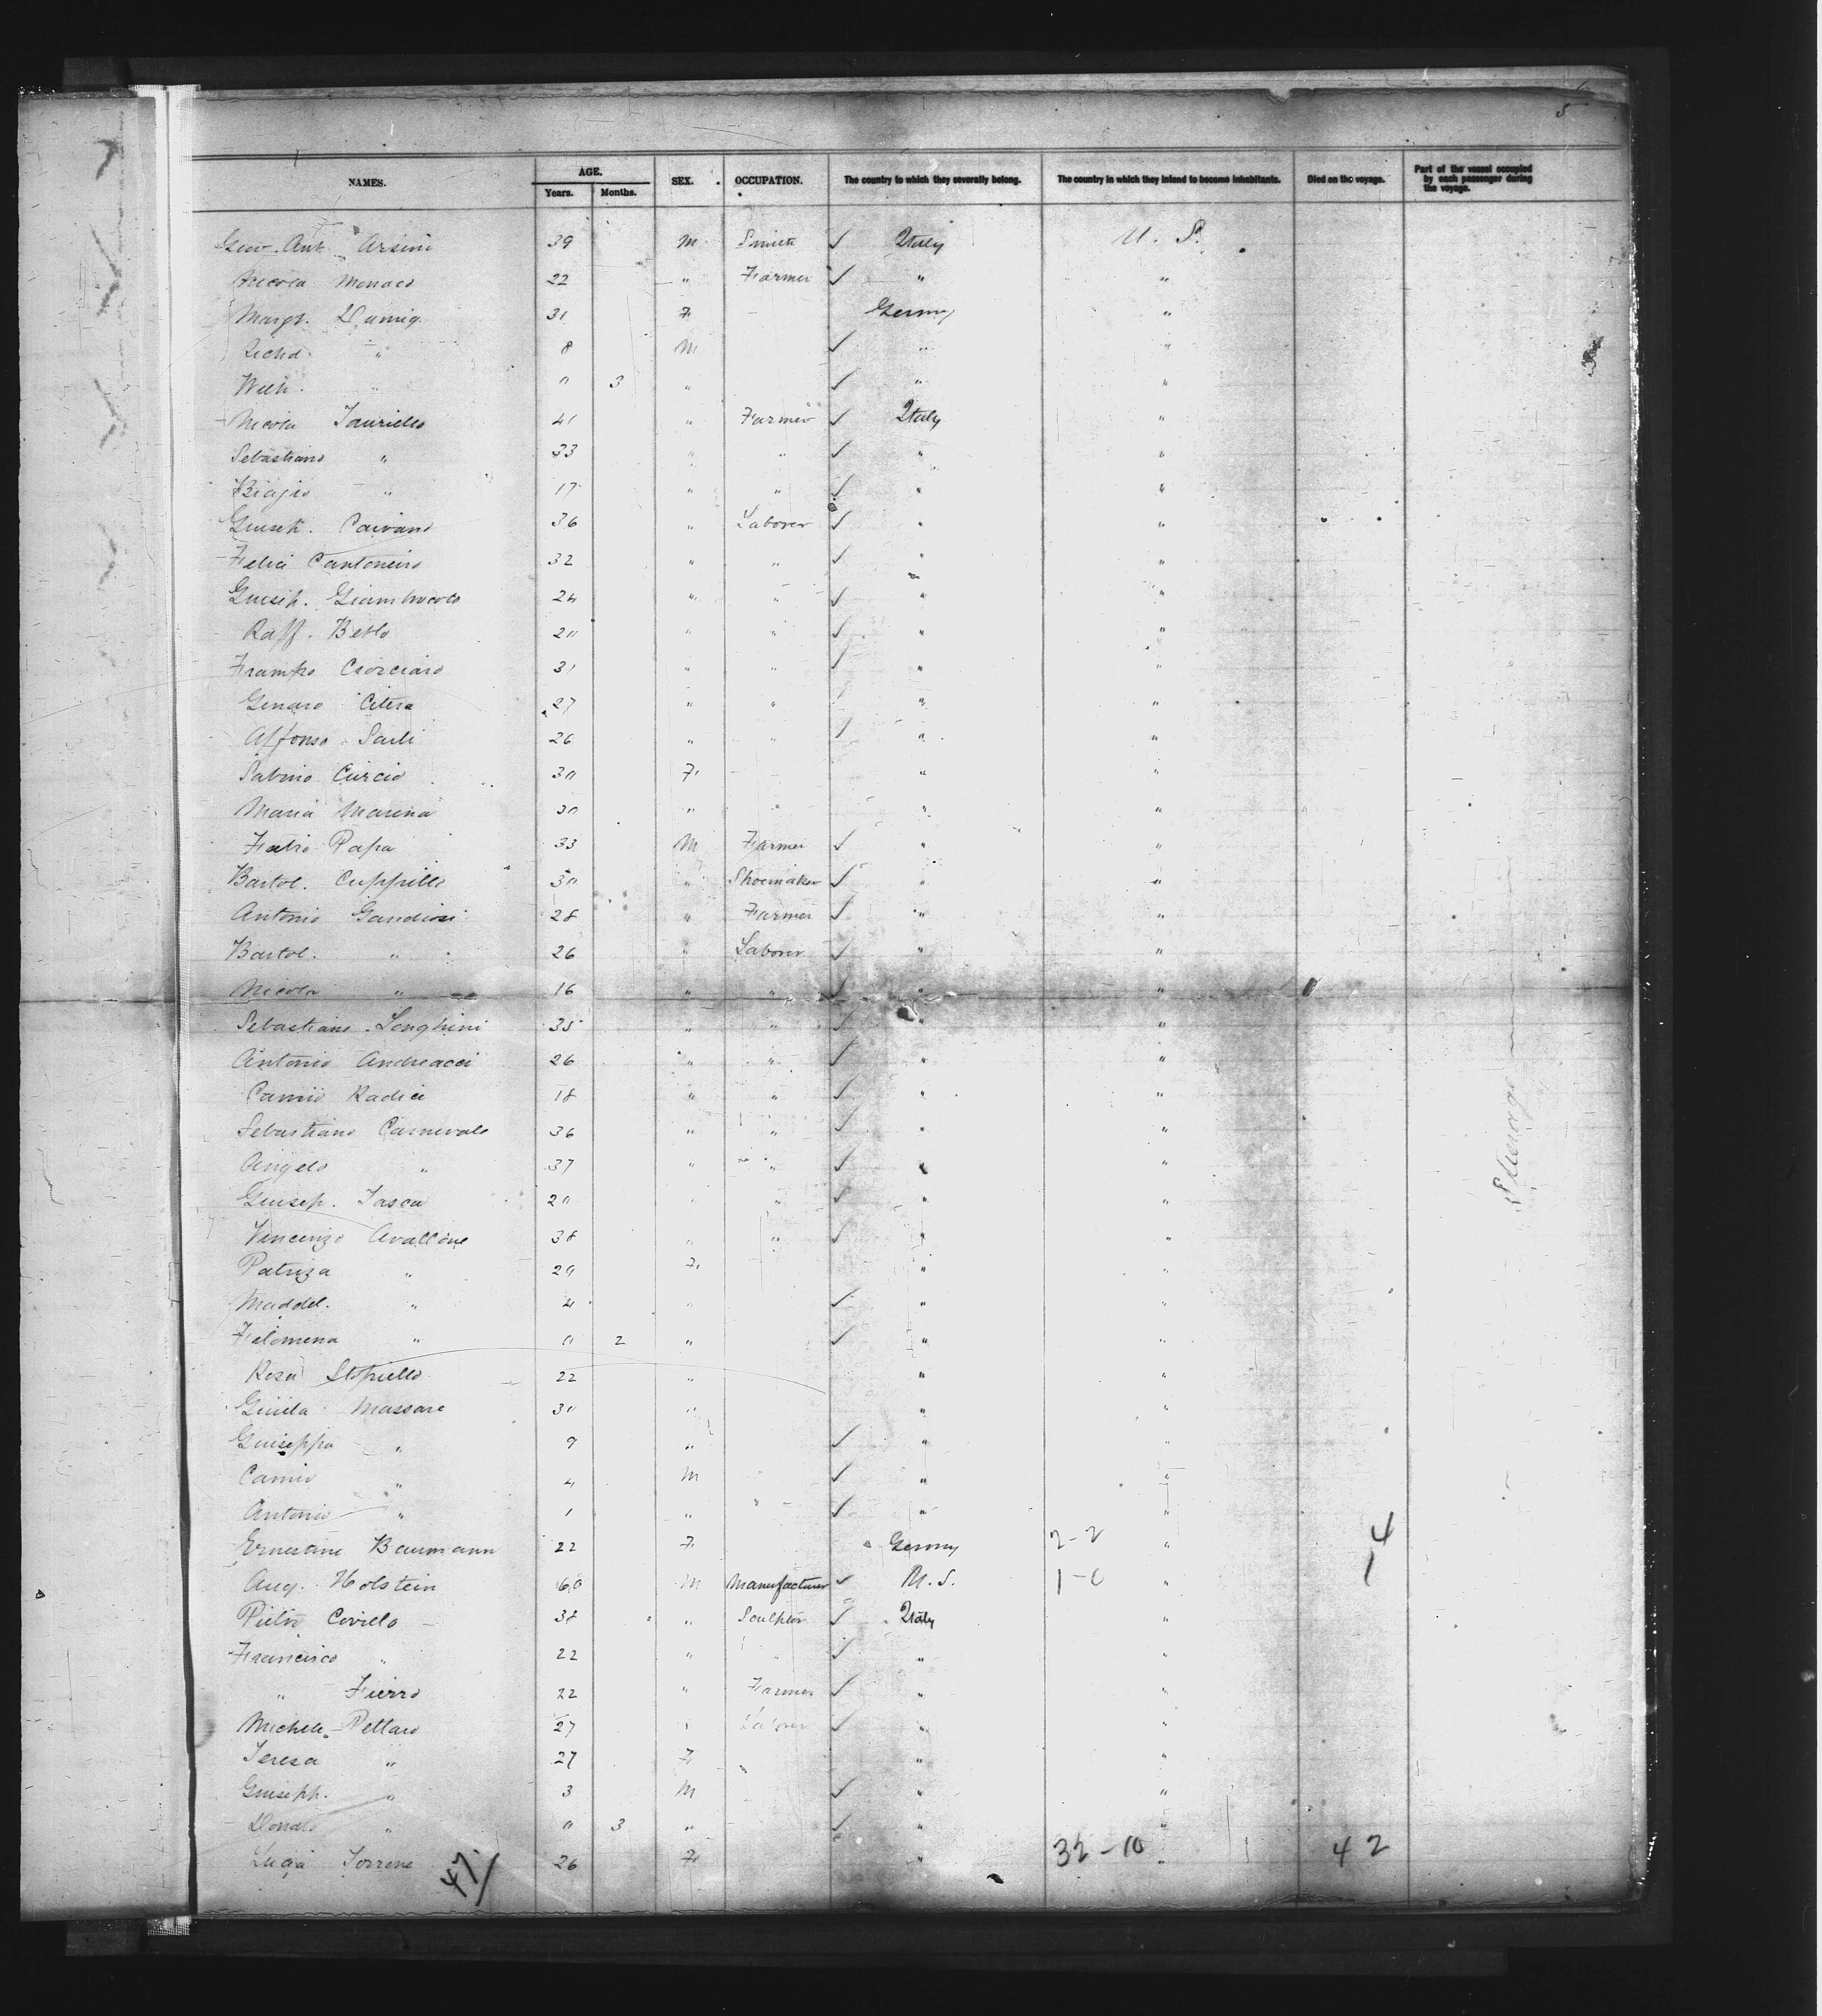 5
NAMES. AGE. SEX. OCCUPATION. The country to which they severally belong. The country in which they intend to become inhabitants. Died on the voyage. Part of the vessel occupied by each passenger during the voyage.
Years. Months.
Ant. Arsini 39 M Smith ✓ Italy U. S.
Nicola Monaco 22 " Farmer ✓ " "
Margt. 31 F - Germy "
" 8 M ✓ " "
Wilh. " 0 3 " ✓ " "
Nicola Iauriello 41 " Farmer ✓ Italy "
Sebastiano " 33 " " ✓ " "
Biagio " 17 " " ✓ " "
Giusep. Caivano 36 " Laborer ✓ " "
Felia Cantoneiro 32 " " ✓ " "
Giusep. Giambrocolo 24 " " ✓ " "
Raff. Bello 20 " " ✓ " "
Csorciaro 31 " " ✓ " "
Genaro Citera 27 " " " "
Alfonso Sarli 26 " " ✓ " "
Sabino Curcio 30 F - " "
Maria Marina 30 " " " "
Papa 33 M Farmer ✓ " "
Bartol. Cupprillo 30 " Shoemaker ✓ " "
Antonio Gandiosi 28 " Farmer ✓ " "
Bartol. " 26 " Laborer ✓ " "
Nicola " 16 " " ✓ " "
Sebastiano Longhini 35 " " ✓ " "
Antonio Andreacci 26 " " ✓ " "
Camio Radici 18 " " ✓ " "
Sebastiano Carnevale 36 " " ✓ " "
Angelo " 37 " " ✓ " "
Giusep. Tasca 20 " " ✓ " "
Vincenzo Avallone 38 " " ✓ " "
Patriza " 29 F " "
Maddel. " 4 " ✓ " "
Filomena " 0 2 " ✓ " "
Rosa Stopiello 22 " " "
Massare 30 " " "
Guiseppa " 9 " ✓ " "
Camio " 4 M ✓ " "
Antonio " 1 " " ✓ " "
Ernestine Baumann 22 F Germy 2-2 " 4
Aug. Holstein 60 M Manufacturer ✓ U. S. 1-0 " 1
Pietro Covillo 38 " Sculptor ✓ Italy "
Francisco " 22 " " ✓ " "
" Fierro 22 " Farmer ✓ " "
Michele Pellaro 27 " Laborer ✓ " "
Teresa " 27 F " "
Guiseph. " 3 M ✓ " "
Donato " 0 3 " ✓ " "
Lucia Torrene 26 F " 32-10 " 42
47/
Steerage